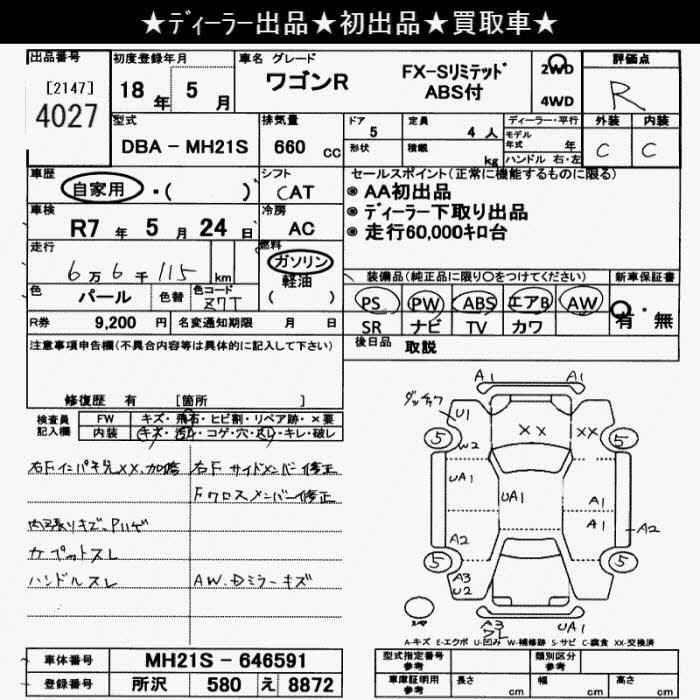 ★ディーラー出品★初出品★買取車★
出品番号 初度登録年月 車名 グレード 評価点
[2147] 4027 18年 5月 ワゴンR FX-Sリミテッド ABS付 2WD 4WD R
型式 排気量 ドア 定員 ディーラー・平行 外装 内装
DBA－MH21S 660 cc 5 4人 モデル年式 年 C C
形状 積載 kg ハンドル 右・左
車歴 シフト セールスポイント(正常に機能するものに限る)
自家用・( ) CAT ◉AA初出品
車検 冷房 ◉ディーラー下取り出品
R7年 5月 24日 AC ◉走行60,000キロ台
走行 燃料
6万6千115 km ガソリン 軽油 ( ) 装備品(純正品に限り○をつけてください) 新車保証書
色 パール 色替 色コード Z7T PS PW ABS エアB AW 有・無
R券 9,200円 名変通知期限 月 日 SR ナビ TV カワ
注意事項申告欄(不具合内容等は具体的に記入して下さい) 後日品 取説
修復歴 有 [箇所 ]
検査員記入欄 FW キズ・飛石・ヒビ割・リペア跡・×要
内装 キズ・汚レ・コゲ・穴・スレ・キレ・破レ
右Fインパネ XX 右Fサイドメンバー修正
Fクロスメンバー修正
内張りキズ、ハゲ
カーペットスレ
ハンドルスレ AW、Dミラーキズ
A1 A1
U1 XX XX
5 5
W2
UA1 UA1 A1
A1 A2
A2
5 5
A3
U2
A3 UA1
A-キズ E-エクボ U-凹み W-補修跡 S-サビ C-腐食 XX-交換済
車体番号 MH21S－646591 型式指定番号 参考 類別区分 参考
登録番号 所沢 580 え 8872 車庫証明用 参考 長さ cm 幅 cm 高さ cm